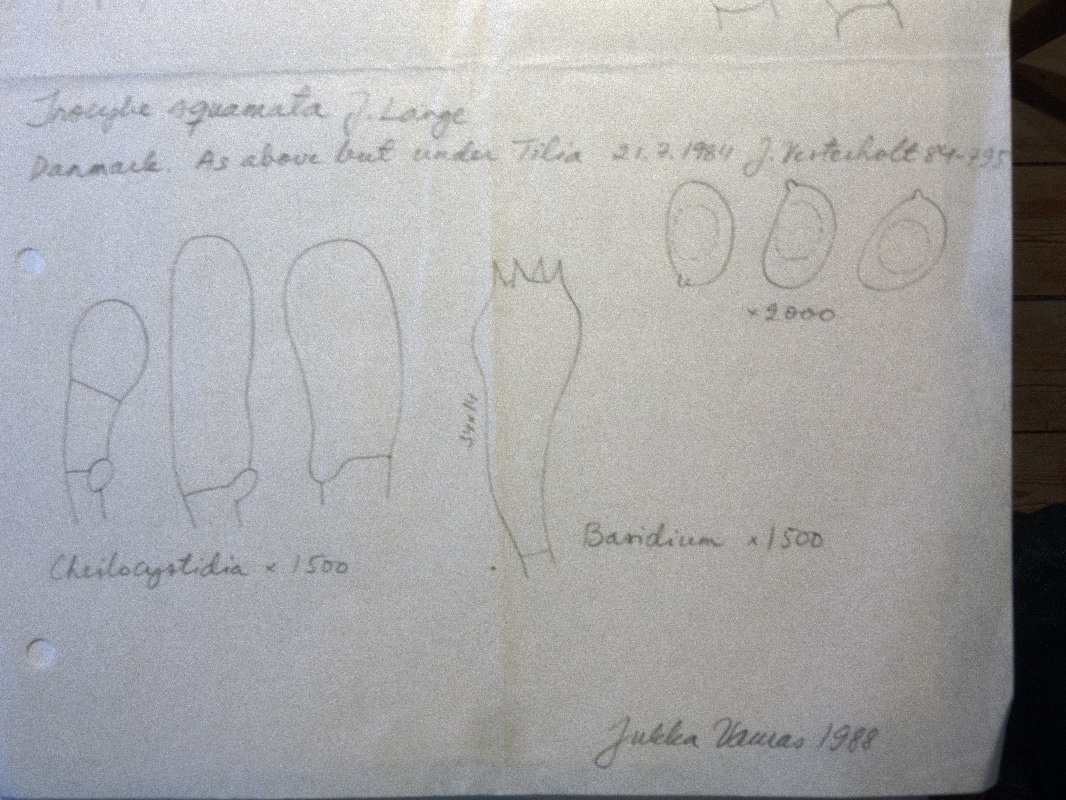 Inocybe squamata J. Lange
Danmark. As above but under Tilia 21.7.1984 J. Vesterholt 84-795
×2000
34×14
Basidium ×1500
Cheilocystidia × 1500
Jukka Vauras 1988